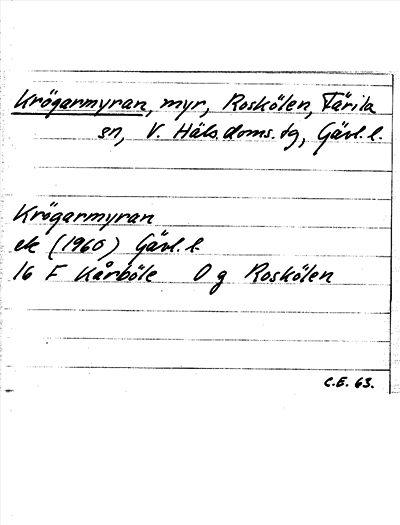 Krögarmyran, myr, Roskölen, Färila
sn, V. Häls. doms. dg, Gävl. l.
Krögarmyran
ek (1960) Gävl. l.
16 F Kårböle 0 g Roskölen
C.E. 63.